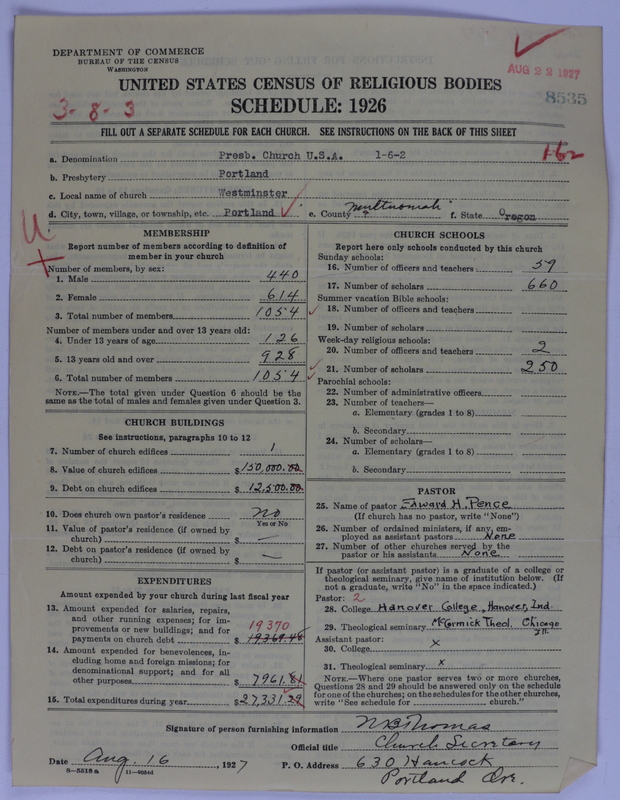 DEPARTMENT OF COMMERCE
BUREAU OF THE CENSUS
WASHINGTON
AUG 22 1927
8535
UNITED STATES CENSUS OF RELIGIOUS BODIES
SCHEDULE: 1926
3-8-3
FILL OUT A SEPARATE SCHEDULE FOR EACH CHURCH. SEE INSTRUCTIONS ON THE BACK OF THIS SHEET
a. Denomination Presb. Church U.S.A. 1-6-2 162
b. Presbytery Portland
c. Local name of church Westminster
d. City, town, village, or township, etc. Portland e. County Multnomah ? f. State Oregon
MEMBERSHIP
Report number of members according to definition of
member in your church
Number of members, by sex:
1. Male 440
2. Female 614
3. Total number of members 1054
Number of members under and over 13 years old:
4. Under 13 years of age 126
5. 13 years old and over 928
6. Total number of members 1054
NOTE.—The total given under Question 6 should be
same as the total of males and females given under Question 3.
CHURCH BUILDINGS
See instructions, paragraphs 10 to 12
7. Number of church edifices 1
8. Value of church edifices $150,000.00
9. Debt on church edifices $12,500.00
10. Does church own pastor's residence No
Yes or No
11. Value of pastor's residence (if owned by
church) $ —
12. Debt on pastor's residence (if owned by
church) $ —
EXPENDITURES
Amount expended by your church during last fiscal year
13. Amount expended for salaries, repairs,
and other running expenses; for im-
provements or new buildings; and for 19370
payments on church debt $19369.48
14. Amount expended for benevolences, in-
cluding home and foreign missions; for
denominational support; and for all
other purposes $7961.81
15. Total expenditures during year $27,331.29
CHURCH SCHOOLS
Report here only schools conducted by this church
Sunday schools:
16. Number of officers and teachers 59
17. Number of scholars 660
Summer vacation Bible schools:
18. Number of officers and teachers
19. Number of scholars
Week-day religious schools:
20. Number of officers and teachers 2
21. Number of scholars 250
Parochial schools:
22. Number of administrative officers
23. Number of teachers—
a. Elementary (grades 1 to 8)
b. Secondary
24. Number of scholars—
a. Elementary (grades 1 to 8)
b. Secondary
PASTOR
25. Name of pastor Edward H. Pence
(If church has no pastor, write "None")
26. Number of ordained ministers, if any, em-
ployed as assistant pastors None
27. Number of other churches served by the
pastor or his assistants None
If pastor (or assistant pastor) is a graduate of a college or
theological seminary, give name of institution below. (If
not a graduate, write "No" in the space indicated.)
Pastor: 2
28. College Hanover College, Hanover, Ind.
29. Theological seminary McCormick Theol. Chicago
Ill.
Assistant pastor:
30. College x
31. Theological seminary x
NOTE.—Where one pastor serves two or more churches,
Questions 28 and 29 should be answered only on the schedule
for one of the churches; on the schedules for the other churches,
write "See schedule for church."
Signature of person furnishing information N B Thomas
Official title Church Secretary
Date Aug. 16, 1927 P. O. Address 630 Hancock
8-5518 a 11-9084d Portland Ore.